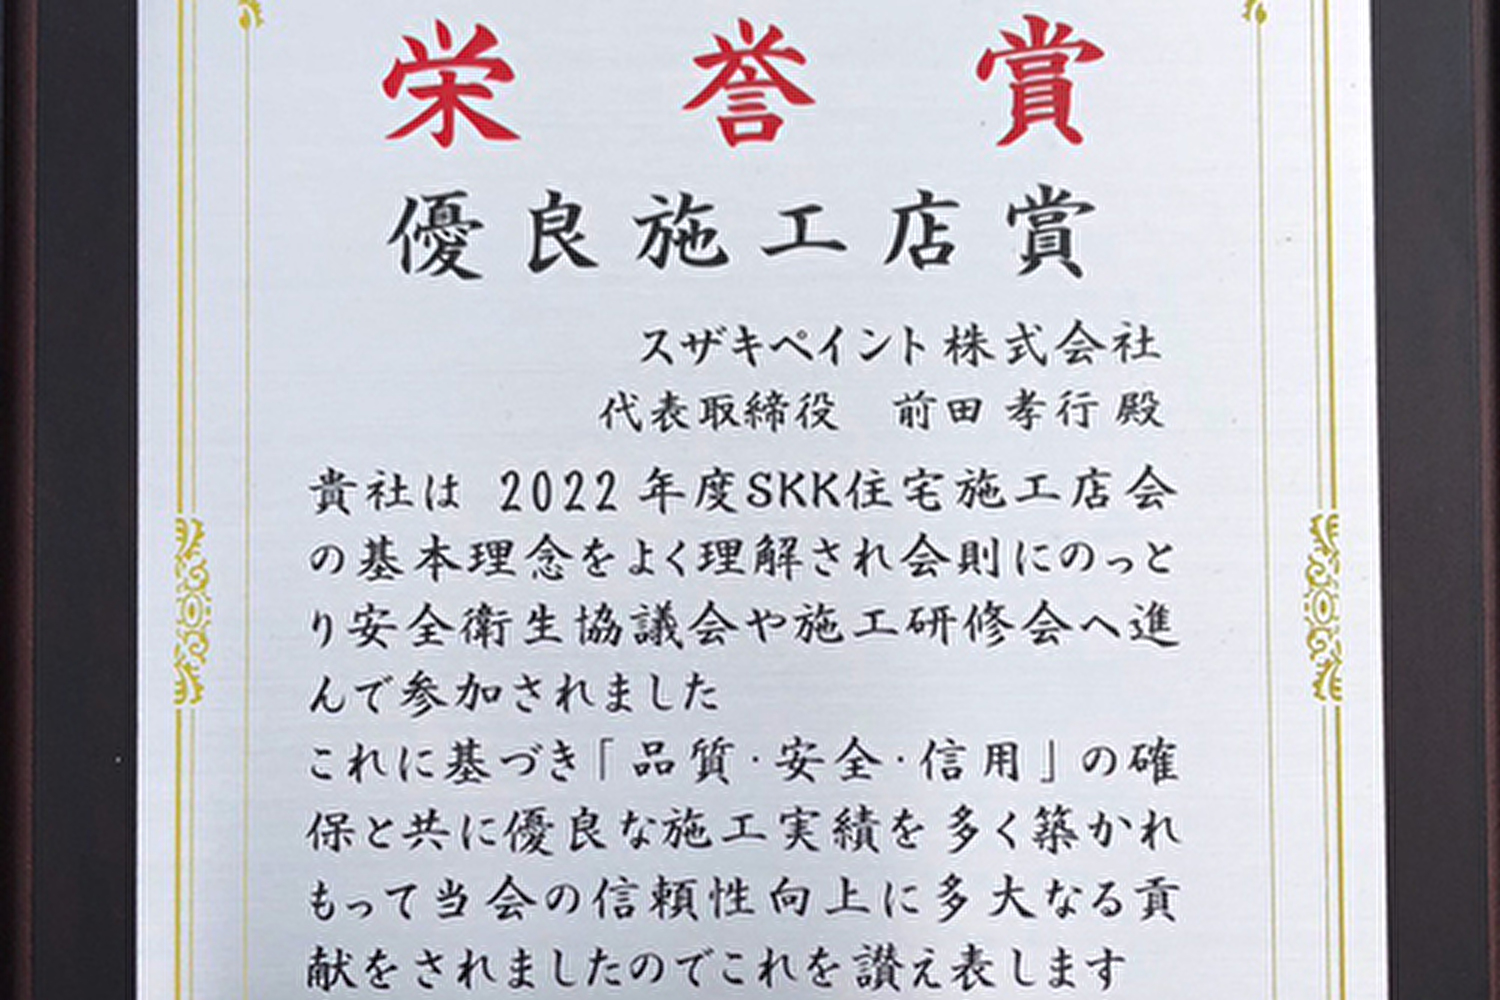 栄誉賞
優良施工店賞
スザキペイント株式会社
代表取締役 前田孝行殿
貴社は 2022年度SKK住宅施工店会
の基本理念をよく理解され会則にのっと
り安全衛生協議会や施工研修会へ進
んで参加されました
これに基づき「品質・安全・信用」の確
保と共に優良な施工実績を多く築かれ
もって当会の信頼性向上に多大なる貢
献をされましたのでこれを讃え表します